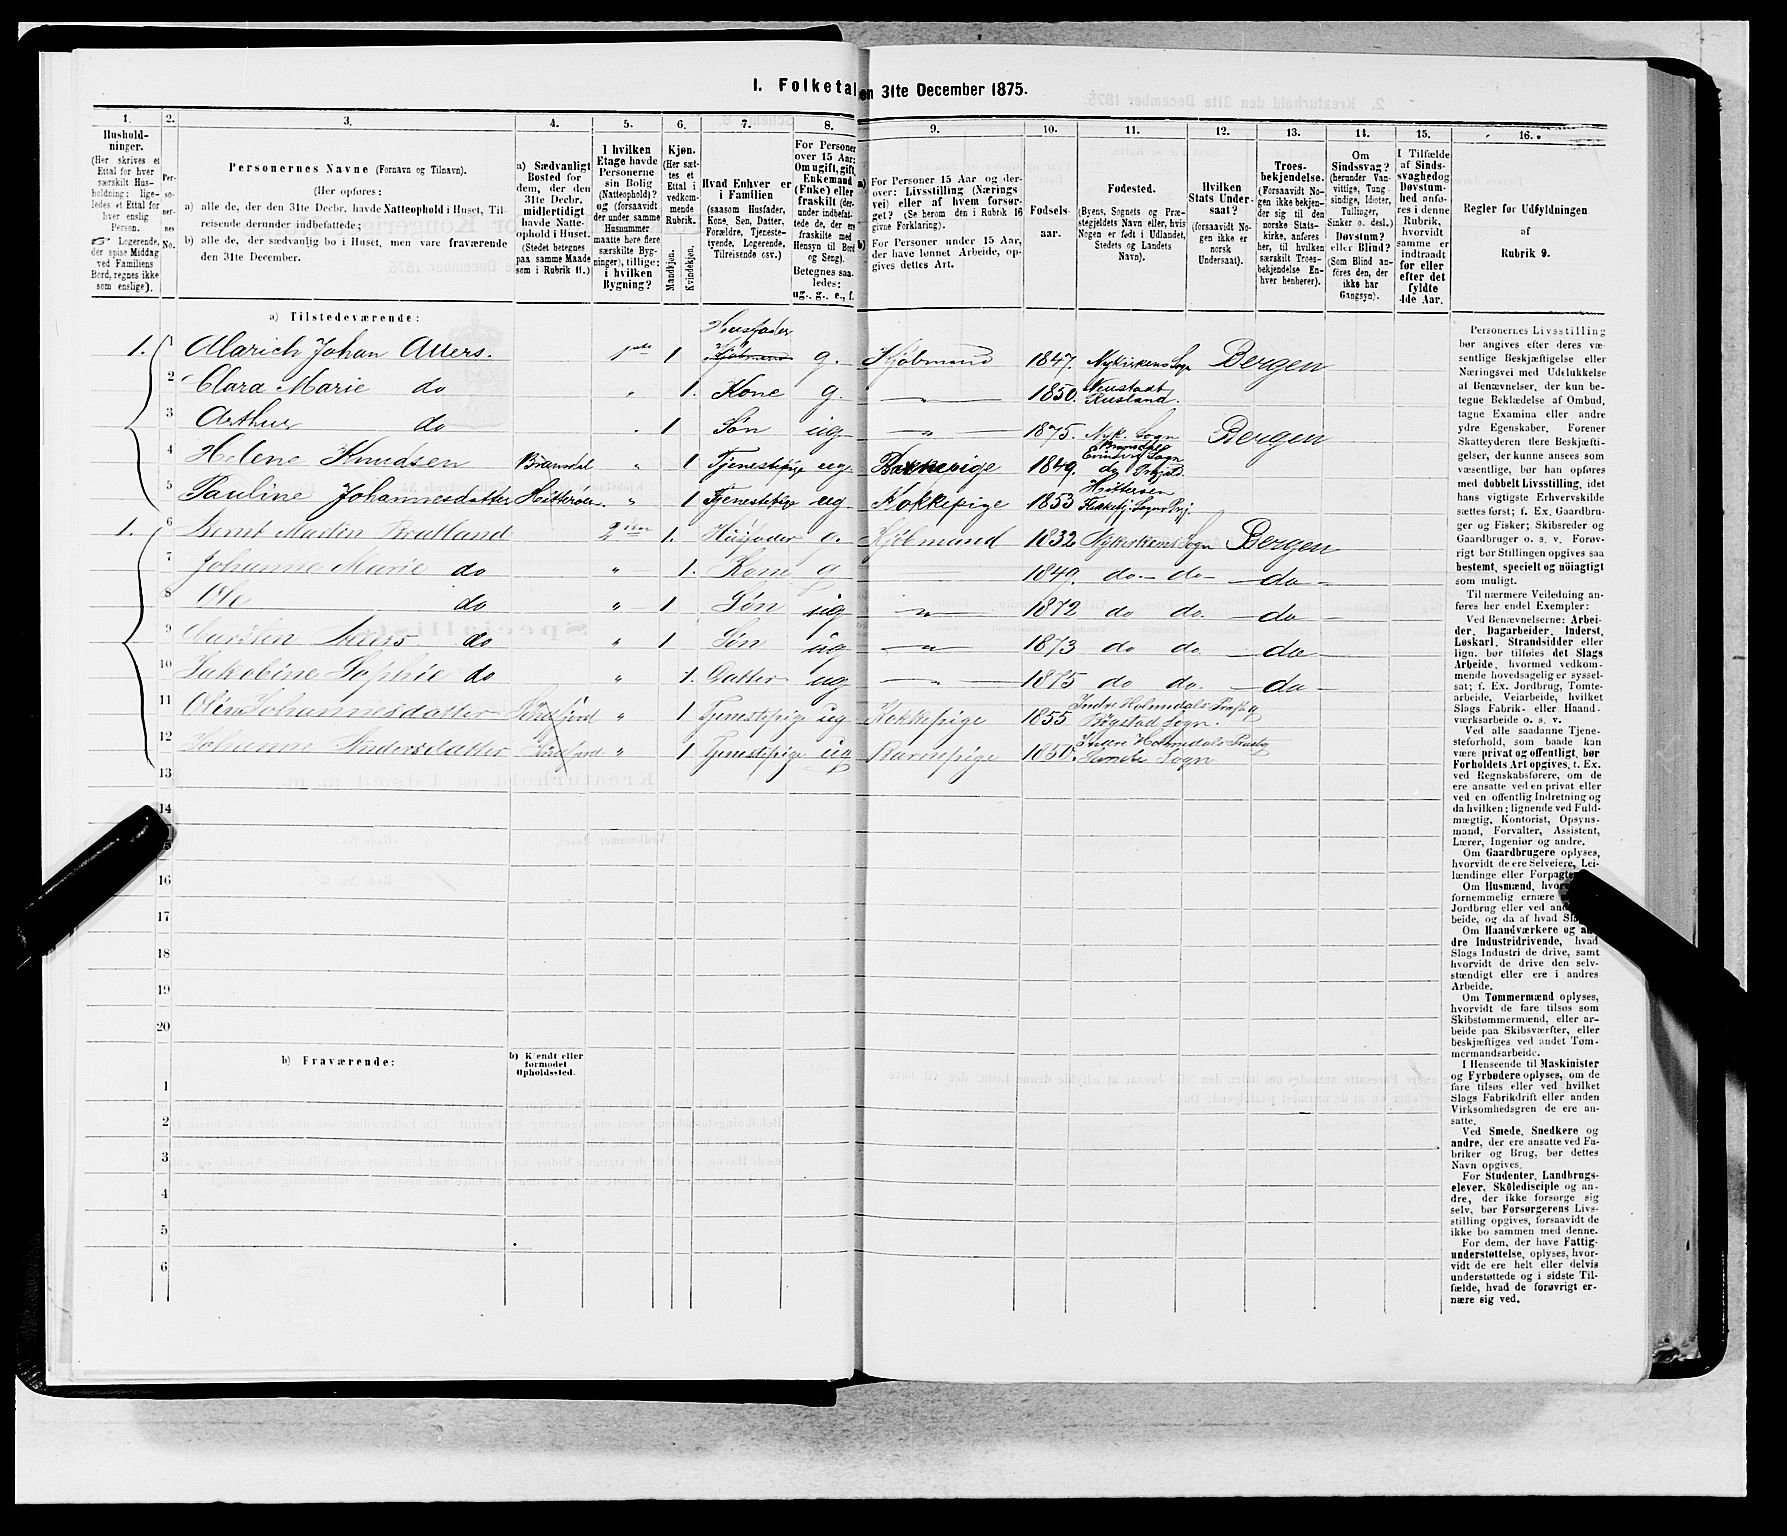 I. Folketal den 31te December 1875.
1.
2.
3.
4.
5.
6.
7.
8.
9.
10.
11.
12.
13.
14.
15.
16.
Hushold-
ninger.
(Her skrives et
Ettal for hver
særskilt Hus-
holdning; lige-
ledes et Ettal for
hver enslig
Person.
☞ Logerende,
der spise Middag
ved Familiens
Bord, regnes ikke
som enslige).
Per-
so-
ner-
nes
No.
Personernes Navne (Fornavn og Tilnavn).
(Her opføres:
a) alle de, der den 31te Decbr. havde Natteophold i Huset, Til-
reisende derunder indbefattede;
b) alle de, der sædvanlig bo i Huset, men vare fraværende
den 31te December.
a) Sædvanligt
Bosted for
dem, der den
31te Decbr.
midlertidigt
havde Natte-
ophold i Huset.
(Stedet betegnes
paa samme Maade
som i Rubrik 11.)
I hvilken
Etage havde
Personerne
sin Bolig
(Natteophold)?
og (forsaavidt
der under samme
Husnummer
maatte høre flere
særskilte Byg-
ninger), tillige:
i hvilken
Bygning?
Kjøn.
(Her sæt-
tes et
Ettal i
vedkom-
mende
Rubrik.
Mandkjøn.
Kvindekjøn.
Hvad Enhver er
i Familien
(saasom Husfader,
Kone, Søn, Datter,
Forældre, Tjeneste-
tyende, Logerende,
Tilreisende osv.)
For Personer
over 15 Aar:
Om ugift, gift,
Enkemand
(Enke) eller
fraskilt (der-
under indbefat-
tede de, der ere
fraskilte med
Hensyn til Bord
og Seng).
Betegnes saa-
ledes:
ug., g., e., f.
a) For Personer 15 Aar og der-
over: Livsstilling (Nærings-
vei) eller af hvem forsør-
get? (Se herom den i Rubrik 16
givne Forklaring).
b) For Personer under 15 Aar,
der have lønnet Arbeide, op-
gives dettes Art.
Fødsels-
aar.
Fødested.
(Byens, Sognets og Præ-
stegjeldets Navn eller, hvis
Nogen er født i Udlandet,
Stedets og Landets
Navn).
Hvilken
Stats Under-
saat?
(forsaavidt No-
gen ikke er
norsk
Undersaat).
Troes-
bekjendelse.
(Forsaavidt No-
gen ikke bekjen-
der sig til den
norske Stats-
kirke, anføres
her, til hvilken
særskilt Troes-
bekjendelse En-
hver henhører).
Om
Sindssvag?
(herunder Van-
vittige, Tung-
sindige, Idioter,
Tullinger,
Sinker o. desl.)
Døvstum?
eller Blind?
(Som Blind an-
føres den, der
ikke har
Gangsyn).
I Tilfælde
af Sinds-
svaghed og
Døvstum-
hed anfø-
res i denne
Rubrik,
hvorvidt
samme er
indtraadt
før eller
efter det
fyldte
4de Aar.
Regler for Udfyldningen
af
Rubrik 9.
a) Tilstedeværende:
1. 1 Alarich Johan Allers. 1ste 1 Husfader Kjøbmand g. Kjøbmand 1847. Nykirkens Sogn Bergen
2 Clara Marie do " 1. Kone g. " 1850. Neustadt Rusland.
3 Arthur do " 1 Søn ug " 1875. Nyk. Sogn Bergen
4 Helene Knudsen Bramdal " 1 Tjenestepige ug Barnepige 1849.
5 Pauline Johannesdatter Hitterøen. " 1 Tjenestepige ug Kokkepige 1853 Hitterøen
1. 6 Bernt Martin Bradland 2den 1. Husfader g. Kjøbmand 1832 Nykirkens Sogn Bergen
7 Johanne Marie do " 1. Kone g " 1849. do do do
8 Ole do " 1 Søn ug " 1872 do do. do
9 Carsten do " 1 Søn ug " 1873 do do. do
10 Jakobine Sophie do " 1. Datter ug " 1875 do do. do
11 Oline Johannesdatter Søndfjord " 1 Tjenestepige ug Kokkepige 1855 Indre Holmedals Præstg Bygstad Sogn.
12 Johanne Andersdatter Søndfjord " 1 Tjenestepige ug Barnepige 1851. Indre Holmedals Præstg Sande Sogn
13
14
16
17
18
19
20
b) Fraværende:
b) Kjendt eller
formodet
Opholdssted.
1
2
3
4
5
6
Personernes Livsstilling
bør angives efter deres væ-
sentlige Beskjæftigelse eller
Næringsvei med Udelukkelse
af Benævnelser, der kun be-
tegne Beklædelse af Ombud,
tagne Examina eller andre
ydre Egenskaber. Forener
Skatteyderen flere Beskjæfti-
gelser, der kunne ansees som
væsentlige, bør han opføres
med dobbelt Livsstilling, idet
hans vigtigste Erhvervskilde
sættes først; f. Ex. Gaardbru-
ger og Fisker; Skibsreder og
Gaardbruger o. s. v. Forøv-
rigt bør Stillingen opgives saa
bestemt, specielt og nöiagtigt
som muligt.
Til nærmere Veiledning an-
føres her endel Exempler:
Ved Benævnelserne: Arbei-
der, Dagarbeider, Inderst,
Løskarl, Strandsidder eller
lign. bør tilføies det Slags
Arbeide, hvormed vedkom-
mende hovedsagelig er syssel-
sat; f. Ex. Jordbrug, Tomte-
arbeide, Veiarbeide, hvilket
Slags Fabrik- eller Haand-
værksarbeide o. s. v.
Ved alle saadanne Tjene-
steforhold, som baade kan
være privat og offentligt, bør
Forholdets Art opgives, f. Ex.
ved Regnskabsførere, om de
ere ansatte ved en privat eller
ved en offentlig Indretning og
da hvilken; lignende ved Fuld-
mægtig, Kontorist, Opsyns-
mand, Forvalter, Assistent,
Lærer, Ingeniør og andre.
Om Gaardbrugere oplyses,
hvorvidt de ere Selveiere, Lei-
lændinge eller
Om Husmænd,
fornemmelig ernære
Jordbrug eller ved
beide, og da af hvad
Om Haandværkere og an-
dre Industridrivende, hvad
Slags Industri de drive, samt
hvorvidt de drive den selv-
stændigt eller ere i andres
Arbeide.
Om Tømmermænd oplyses,
hvorvidt de fare tilsøs som
Skibstømmermænd, eller ar-
beide paa Skibsværfter, eller
beskjæftiges ved andet Tøm-
mermandsarbeide.
I Henseende til Maskinister
og Fyrbødere oplyses, om de
fare tilsøs eller ved hvilket
Slags Fabrikdrift eller anden
Virksomhedsgren de ere an-
satte.
Ved Smede, Snedkere og
andre, der ere ansatte ved Fa-
briker og Brug, bør dettes
Navn opgives.
For Studenter, Landbrugs-
elever, Skoledisciple og an-
dre, der ikke forsørge sig
selv, bør Forsørgerens Livs-
stilling opgives, forsaavidt de
ikke bo sammen med denne.
For dem, der have Fattig-
understøttelse, oplyses, hvor-
vidt de ere helt eller delvis
understøttede og i sidste Til-
fælde, hvad de forøvrigt er-
nære sig ved.